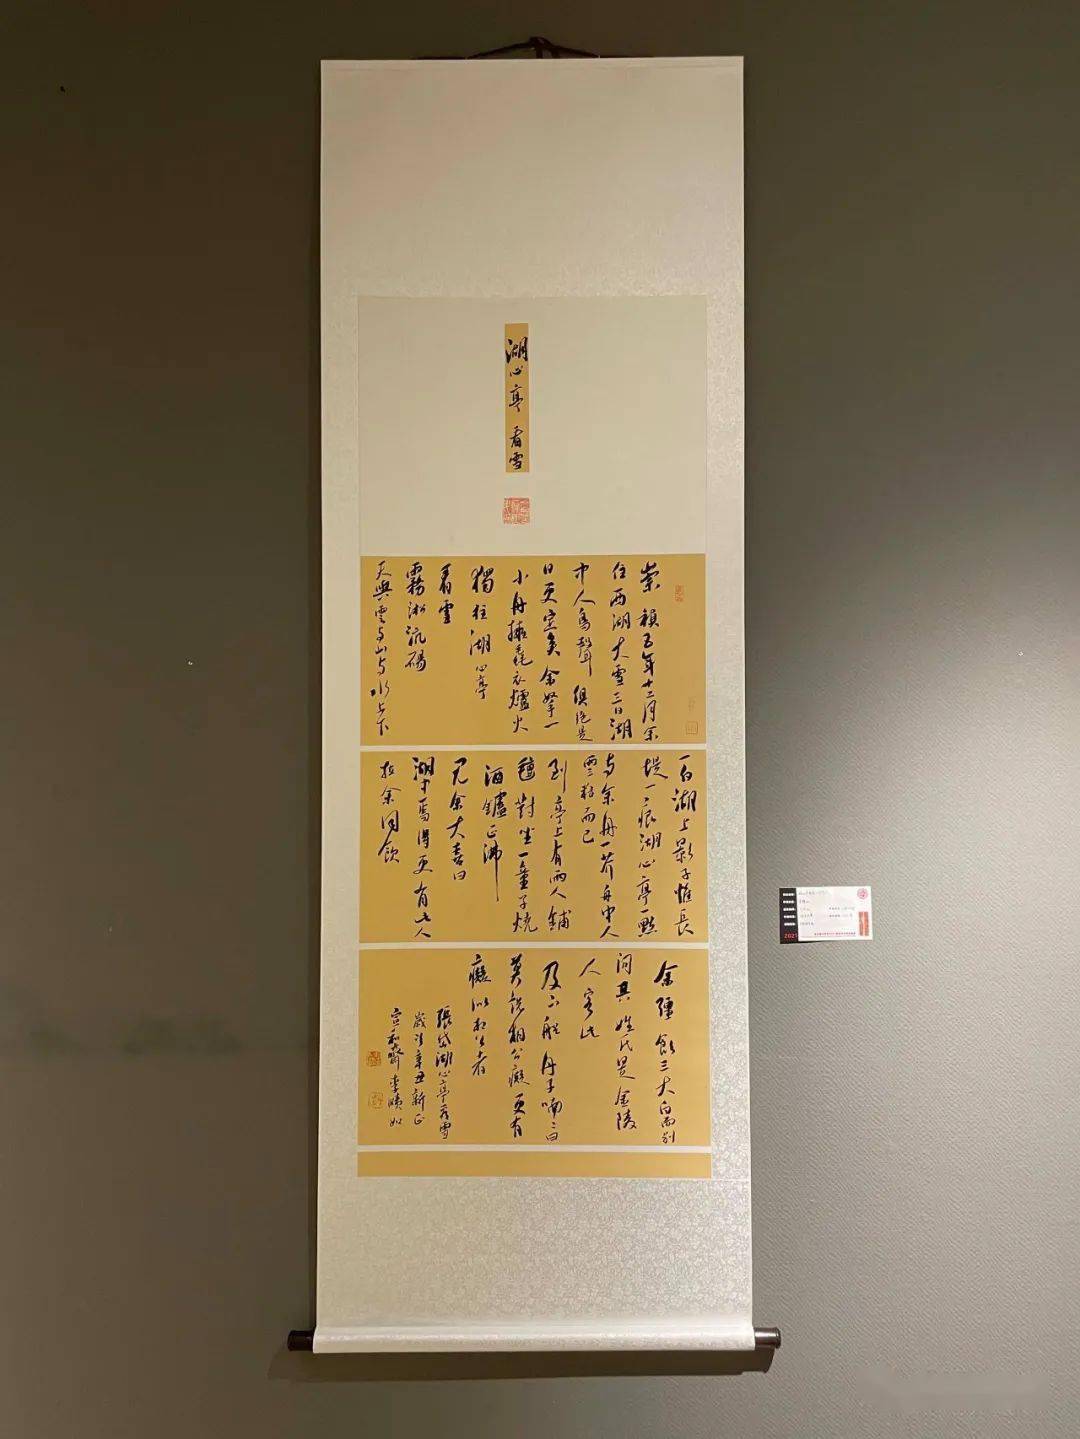 湖心亭看雪
崇禎五年十二月余
住西湖大雪三日湖
中人鳥聲俱絕是
日更定矣余拏一
小舟擁毳衣爐火
獨往湖心亭
看雪
霧淞沆碭
天與雲與山與水上下
一白湖上影子惟長
堤一痕湖心亭一點
與余舟一芥舟中人
兩三粒而已
到亭上有兩人鋪
氈對坐一童子燒
酒鑪正沸
見余大喜曰
湖中焉得更有此人
拉余同飲
余強飲三大白而別
問其姓氏是金陵
人客此
及下船舟子喃喃曰
莫說相公癡更有
癡似相公者
張岱湖心亭看雪
歲次辛丑新正
宣和齋李曉如
2021